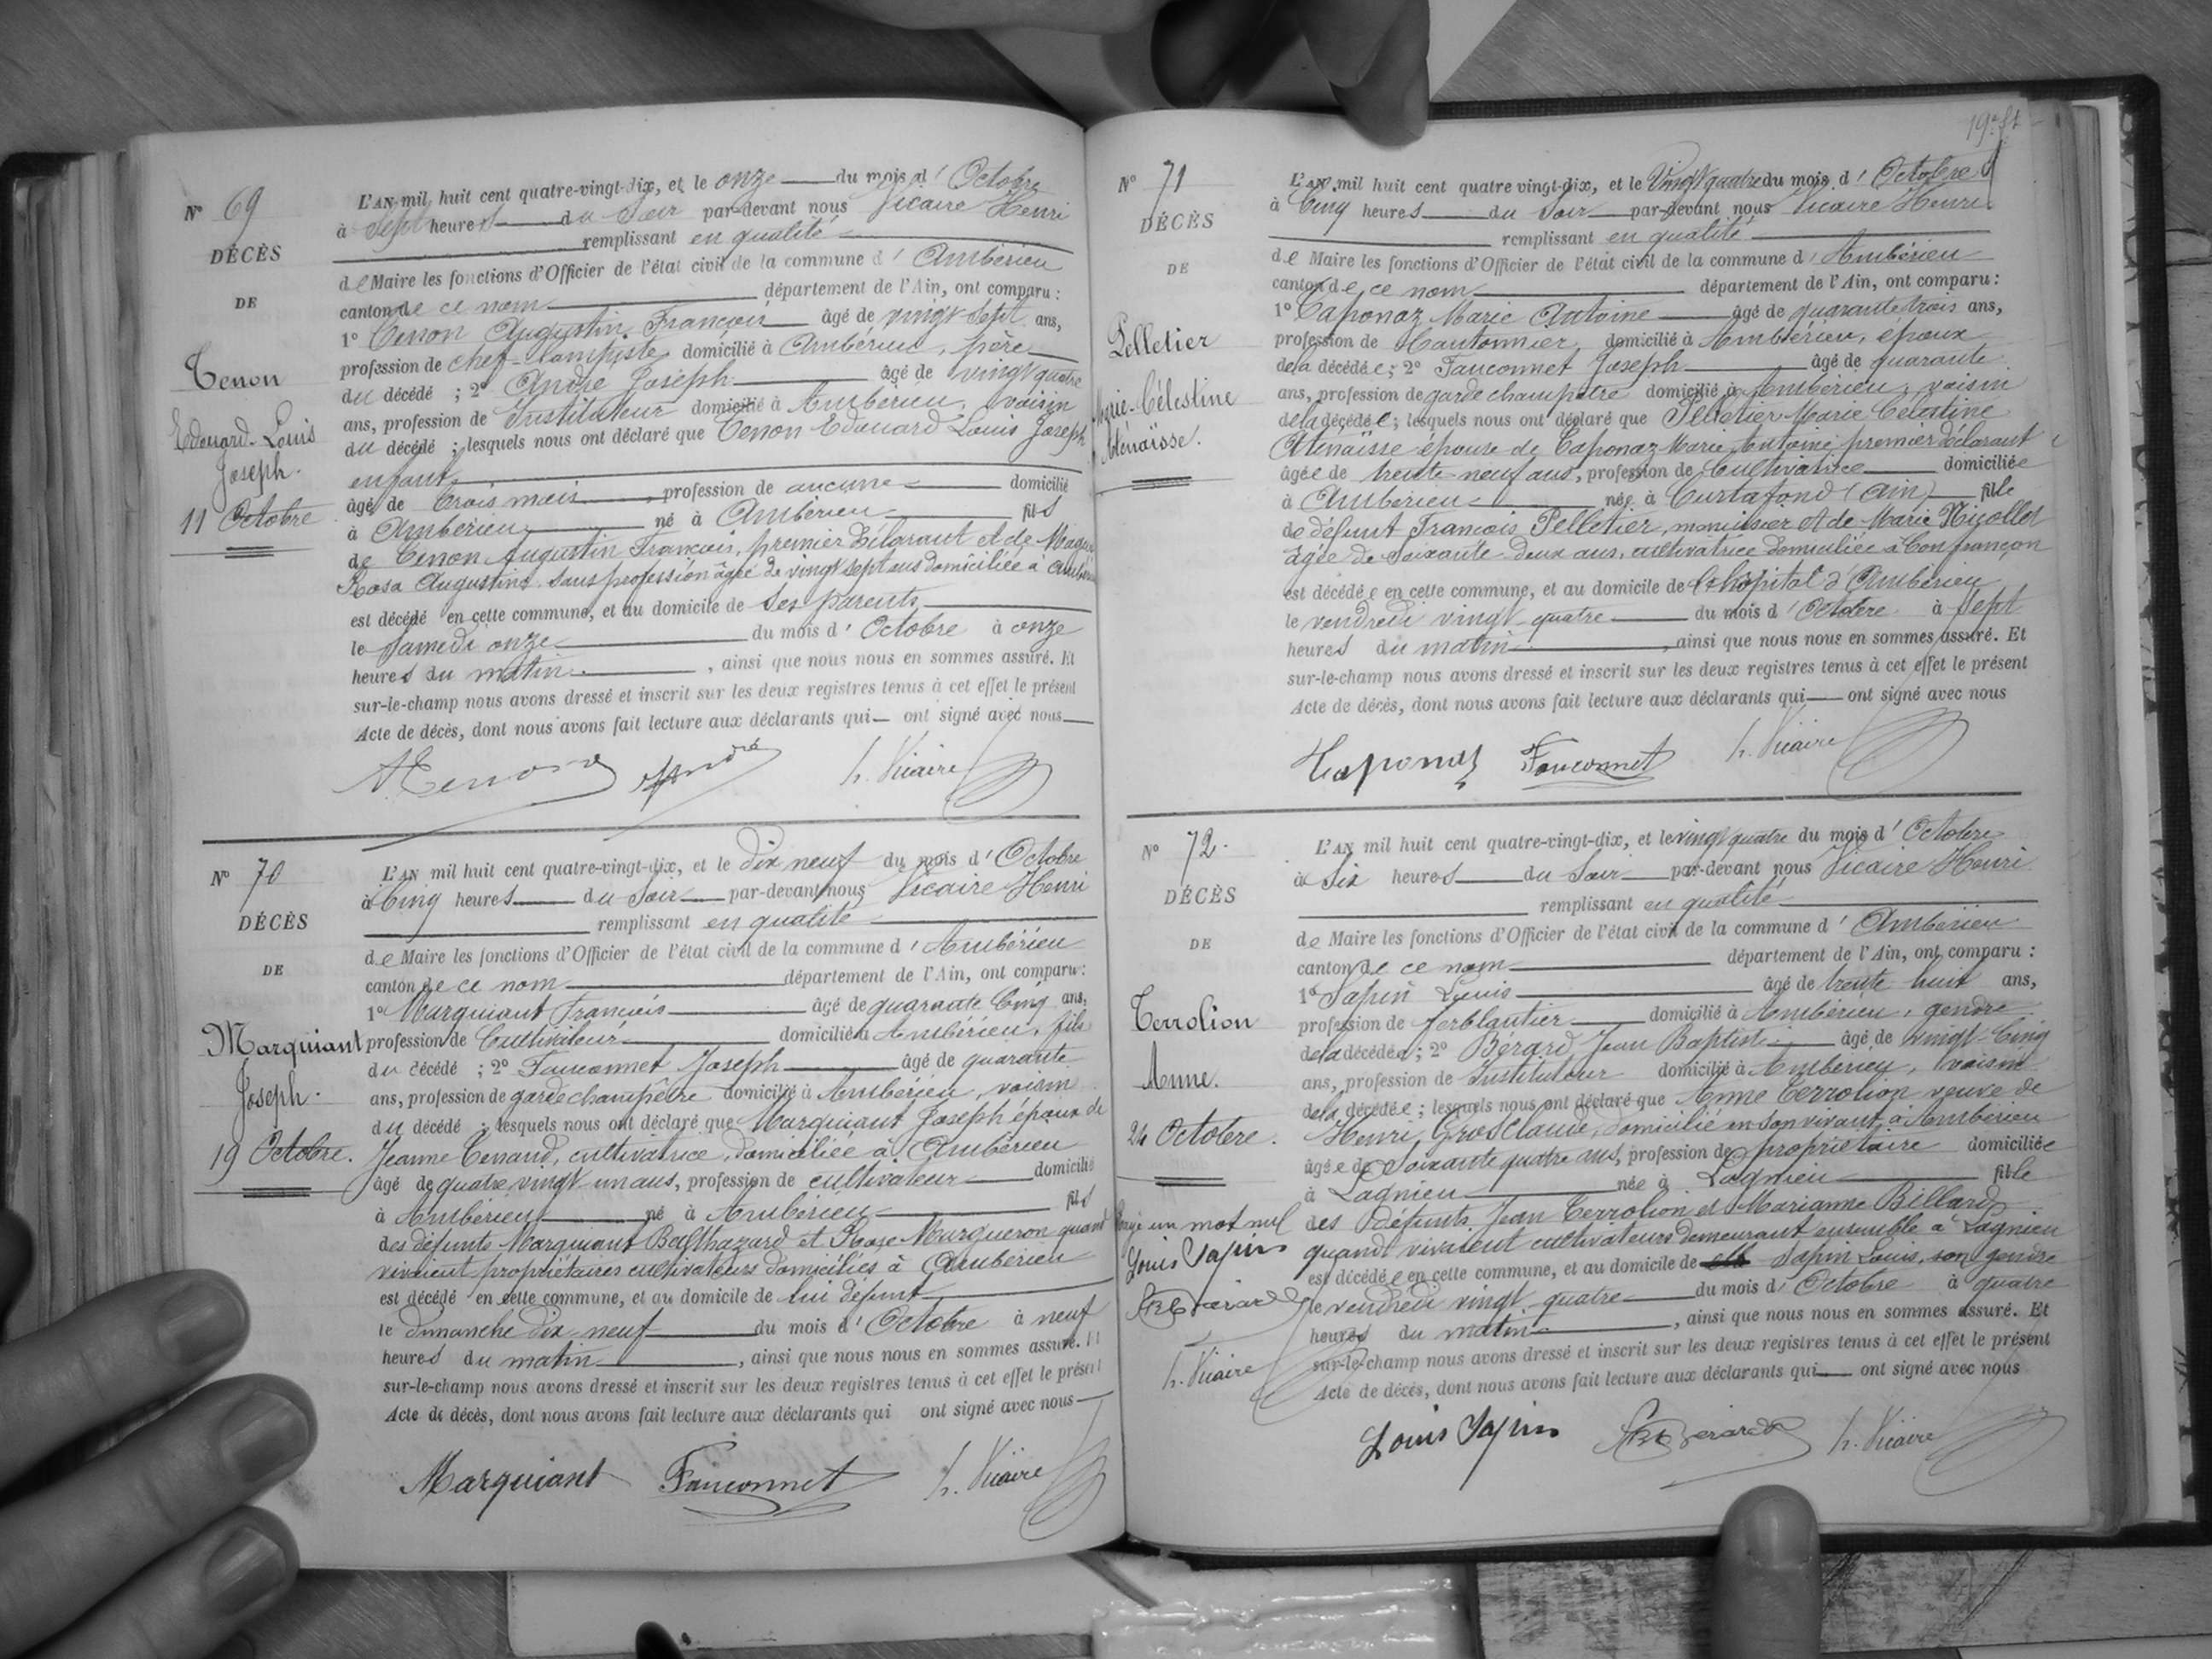 N° 69
DÉCÈS
DE
Tenon
Edouard-Louis
Joseph.
11 Octobre
L'AN mil huit cent quatre-vingt-dix, et le onze du mois d'Octobre
à Sept heures du Soir par-devant nous Vicaire Henri
remplissant en qualité
de Maire les fonctions d'Officier de l'état civil de la commune d'Ambérieu
canton de ce nom département de l'Ain, ont comparu :
1° Tenon Augustin François âgé de vingt sept ans,
profession de chef-lampiste domicilié à Ambérieu, père
du décédé ; 2° André Joseph âgé de vingt quatre
ans, profession de Instituteur domicilié à Ambérieu, voisin
du décédé ; lesquels nous ont déclaré que Tenon Edouard Louis Joseph
enfant
âgé de trois mois, profession de aucune domicilié
à Ambérieu né à Ambérieu fils
de Tenon Augustin François, premier déclarant et de
Rosa Augustine sans profession âgée de vingt sept ans domiciliée à
est décédé en cette commune, et au domicile de ses parents
le Samedi onze du mois d'Octobre à onze
heures du matin, ainsi que nous nous en sommes assuré. Et
sur-le-champ nous avons dressé et inscrit sur les deux registres tenus à cet effet le présent
Acte de décès, dont nous avons fait lecture aux déclarants qui ont signé avec nous
ATenon André h. Vicaire
N° 70
DÉCÈS
DE
Marquiant
Joseph.
19 Octobre.
L'AN mil huit cent quatre-vingt-dix, et le dix neuf du mois d'Octobre
à Cinq heures du Soir par-devant nous Vicaire Henri
remplissant en qualité
de Maire les fonctions d'Officier de l'état civil de la commune d'Ambérieu
canton de ce nom département de l'Ain, ont comparu :
1° Marquiant François âgé de quarante Cinq ans,
profession de Cultivateur domicilié à Ambérieu, fils
du décédé ; 2° Fauconnet Joseph âgé de quarante
ans, profession de garde champêtre domicilié à Ambérieu, voisin
du décédé ; lesquels nous ont déclaré que Marquiant Joseph époux de
Jeanne Tenand, cultivatrice, domiciliée à Ambérieu
âgé de quatre vingt un ans, profession de cultivateur domicilié
à Ambérieu né à Ambérieu fils
des défunts Marquiant Balthazard et Rose Murgueron quand
vivaient propriétaires cultivateurs domiciliés à Ambérieu
est décédé en cette commune, et au domicile de lui défunt
le dimanche dix neuf du mois d'Octobre à neuf
heures du matin, ainsi que nous nous en sommes assuré. Et
sur-le-champ nous avons dressé et inscrit sur les deux registres tenus à cet effet le présent
Acte de décès, dont nous avons fait lecture aux déclarants qui ont signé avec nous
Marquiant Fauconnet h. Vicaire
N° 71
DÉCÈS
DE
Pelletier
Marie-Célestine
Aténaïsse.
L'AN mil huit cent quatre vingt-dix, et le Vingt quatre du mois d'Octobre
à Cinq heures du Soir par-devant nous Vicaire Henri
remplissant en qualité
de Maire les fonctions d'Officier de l'état civil de la commune d'Ambérieu
canton de ce nom département de l'Ain, ont comparu :
1° Taponaz Marie Antoine âgé de quarante trois ans,
profession de Cantonnier domicilié à Ambérieu, époux
de la décédée ; 2° Fauconnet Joseph âgé de quarante
ans, profession de garde champêtre domicilié à Ambérieu, voisin
de la décédée ; lesquels nous ont déclaré que Pelletier Marie Célestine
Aténaïsse épouse de Taponaz Marie Antoine premier déclarant
âgée de trente-neuf ans, profession de Cultivatrice domiciliée
à Ambérieu née à Curtafond (Ain) fille
de défunt François Pelletier, menuisier et de Marie Nicollet
âgée de soixante-deux ans, cultivatrice domiciliée à Confrançon
est décédée en cette commune, et au domicile de l'hôpital d'Ambérieu
le vendredi vingt-quatre du mois d'Octobre à Sept
heures du matin, ainsi que nous nous en sommes assuré. Et
sur-le-champ nous avons dressé et inscrit sur les deux registres tenus à cet effet le présent
Acte de décès, dont nous avons fait lecture aux déclarants qui ont signé avec nous
Taponaz Fauconnet h. Vicaire
N° 72.
DÉCÈS
DE
Terrolion
Anne.
24 Octobre.
un mot nul
Louis Sapin
JB Bérard
h. Vicaire
L'AN mil huit cent quatre-vingt-dix, et le vingt quatre du mois d'Octobre
à Six heures du Soir par-devant nous Vicaire Henri
remplissant en qualité
de Maire les fonctions d'Officier de l'état civil de la commune d'Ambérieu
canton de ce nom département de l'Ain, ont comparu :
1° Sapin Louis âgé de trente-huit ans,
profession de ferblantier domicilié à Ambérieu, gendre
de la décédée ; 2° Bérard Jean Baptiste âgé de vingt-Cinq
ans, profession de Instituteur domicilié à Ambérieu, voisin
de la décédée ; lesquels nous ont déclaré que Anne Terrolion veuve de
Henri GrosClaude, domicilié en son vivant à Ambérieu
âgée de Soixante quatre ans, profession de propriétaire domiciliée
à Lagnieu née à Lagnieu fille
des défunts Jean Terrolion et Marianne Billard
quand vivaient cultivateurs demeurant ensemble à Lagnieu
est décédée en cette commune, et au domicile de Sapin Louis, son gendre
le vendredi vingt quatre du mois d'Octobre à quatre
heures du matin, ainsi que nous nous en sommes assuré. Et
sur-le-champ nous avons dressé et inscrit sur les deux registres tenus à cet effet le présent
Acte de décès, dont nous avons fait lecture aux déclarants qui ont signé avec nous
Louis Sapin JB Bérard h. Vicaire